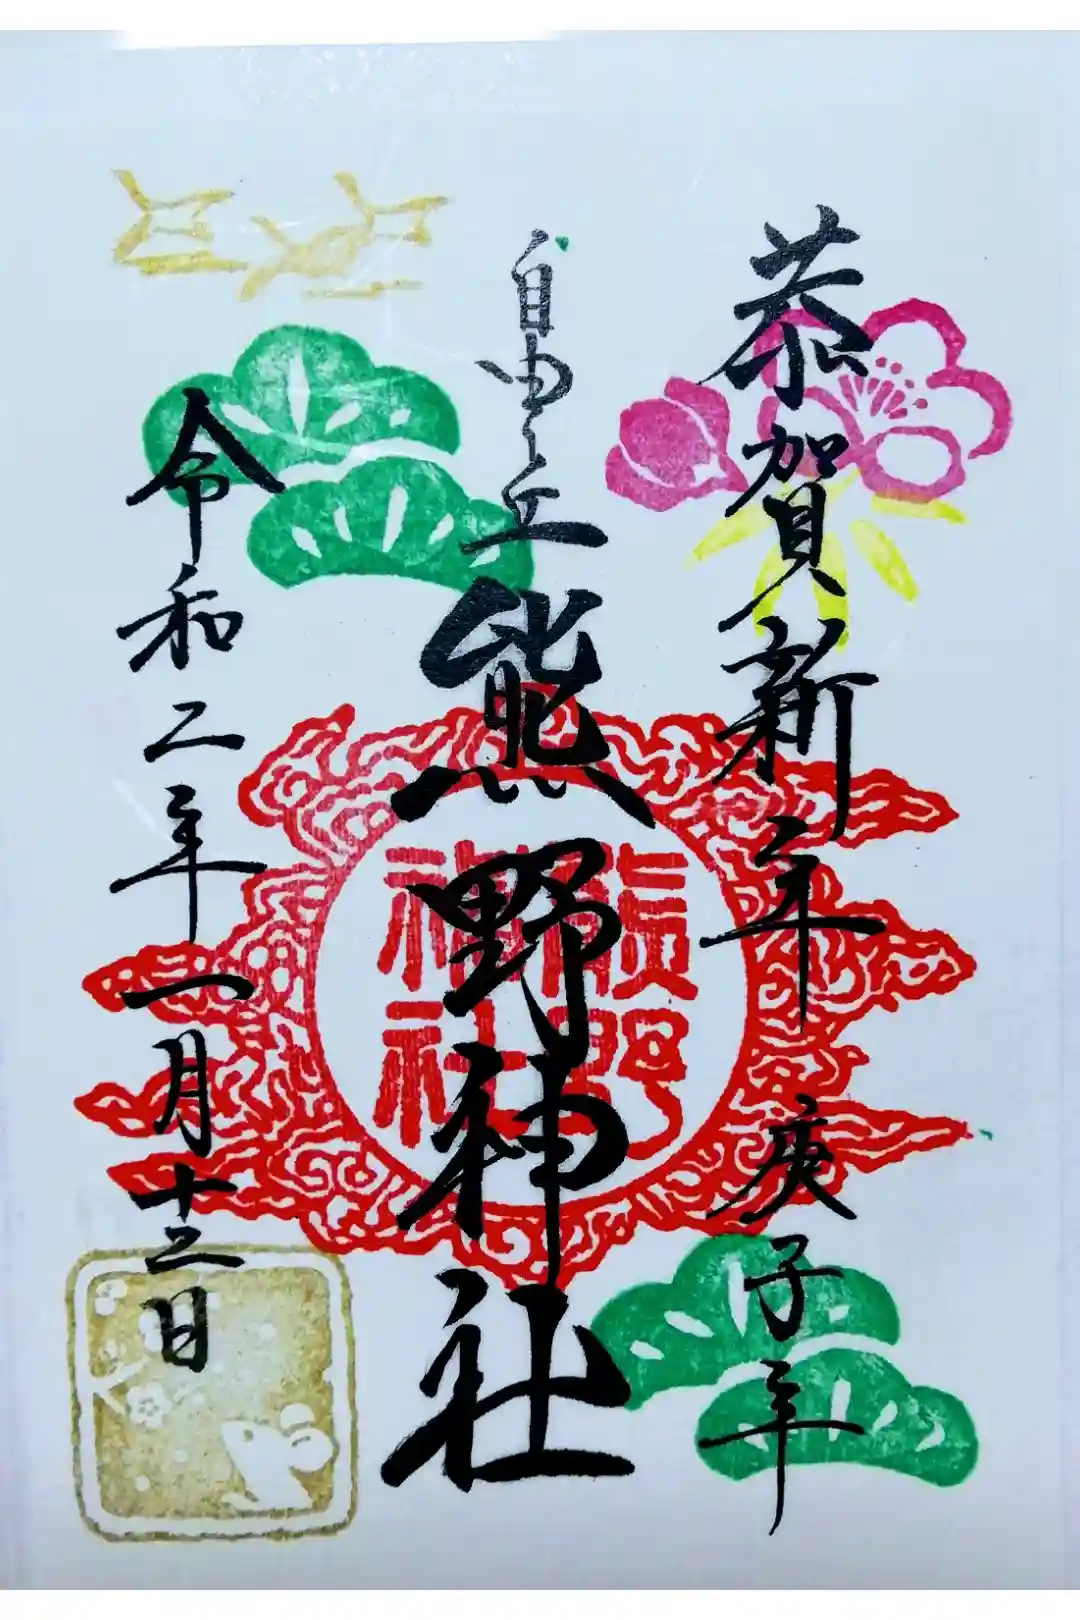 恭賀新年 庚子年
自由ヶ丘 熊野神社
熊野
神社
令和二年一月十三日